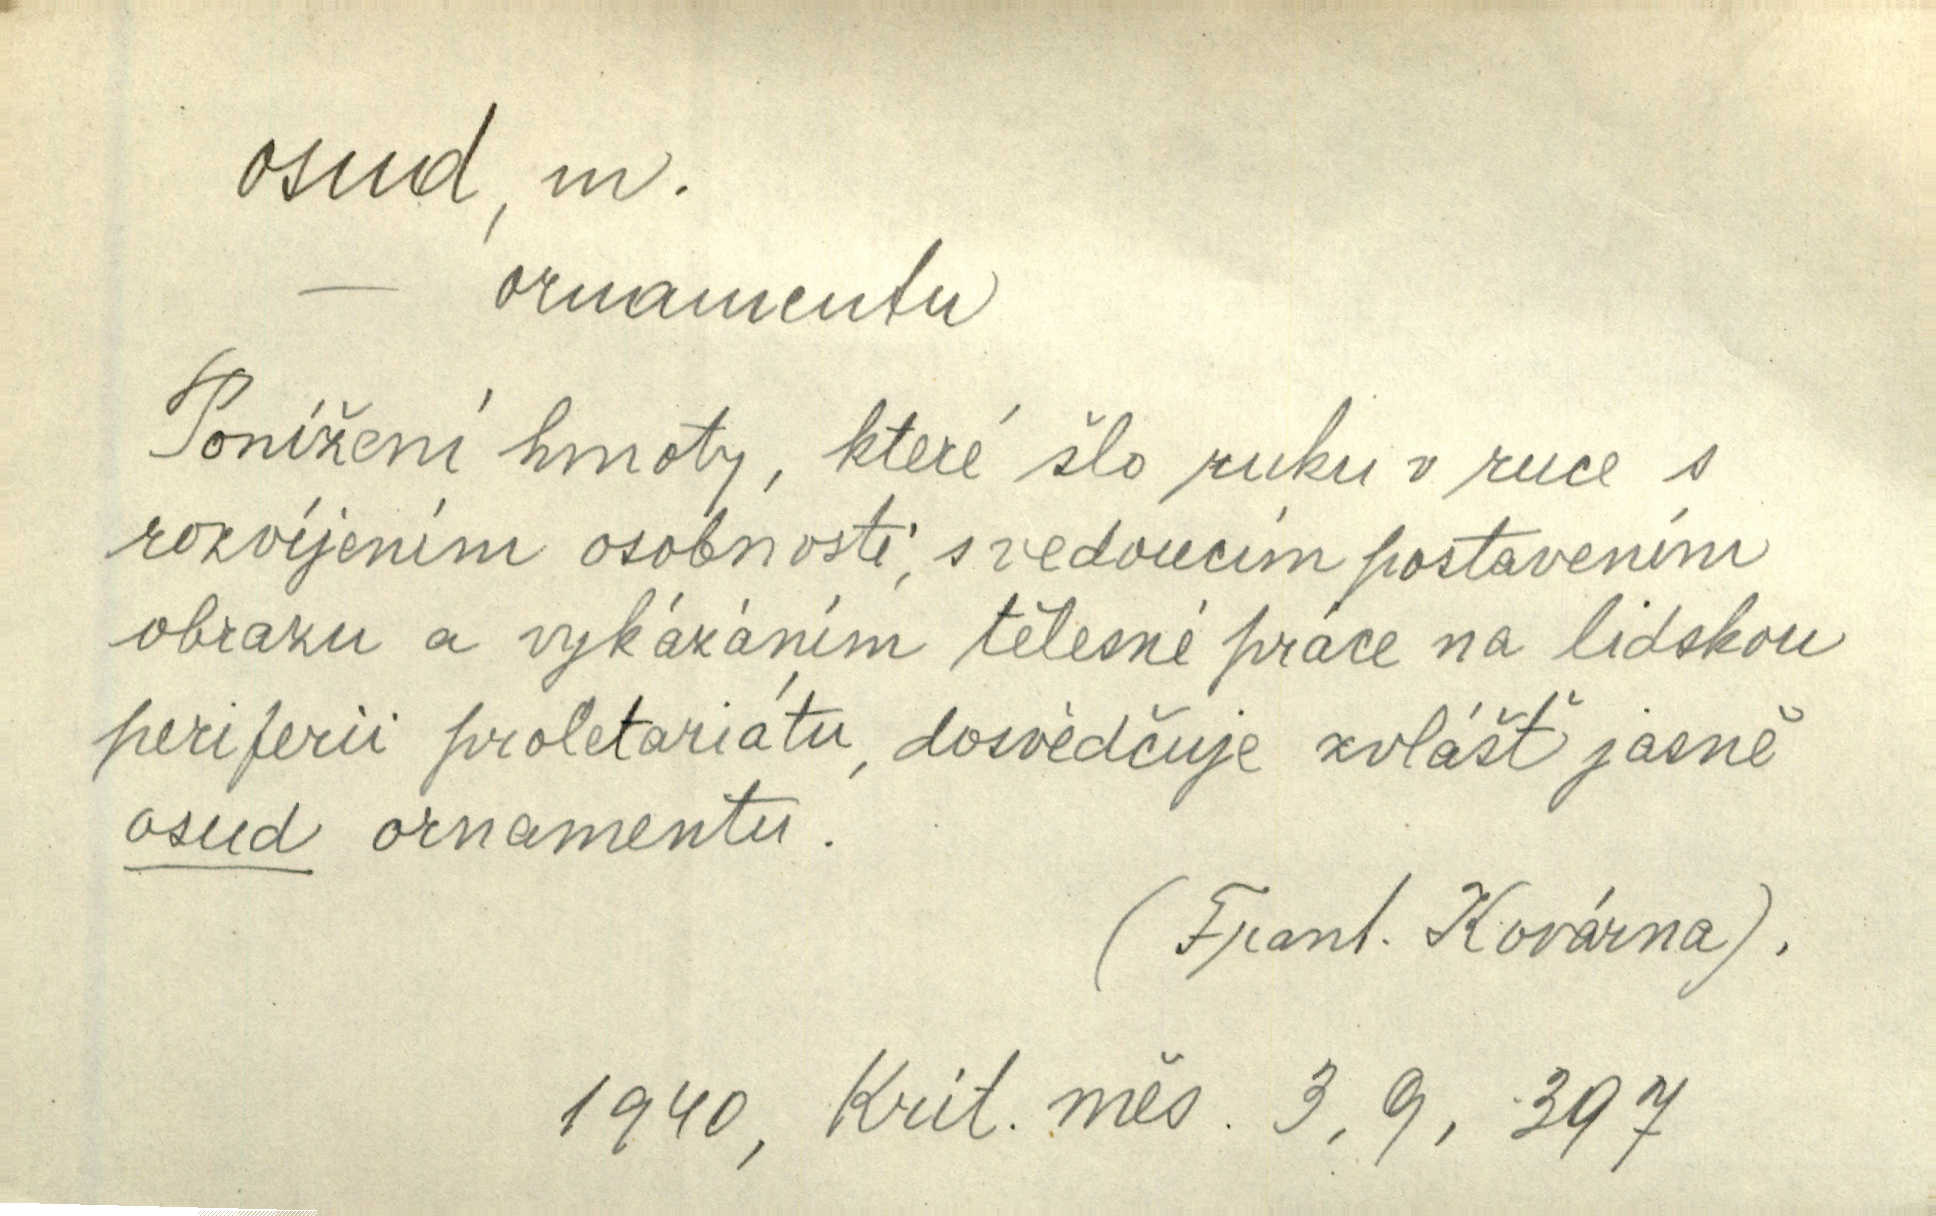 osud, m.
— ornamentu
Ponížení hmoty, které šlo ruku v ruce s
rozvíjením osobnosti, s vedoucím postavením
obrazu a vykázáním tělesné práce na lidskou
periferii proletariátu, dosvědčuje zvlášť jasně
osud ornamentu.
(Frant. Kovárna).
1940, Krit. měs. 3, 9, 397